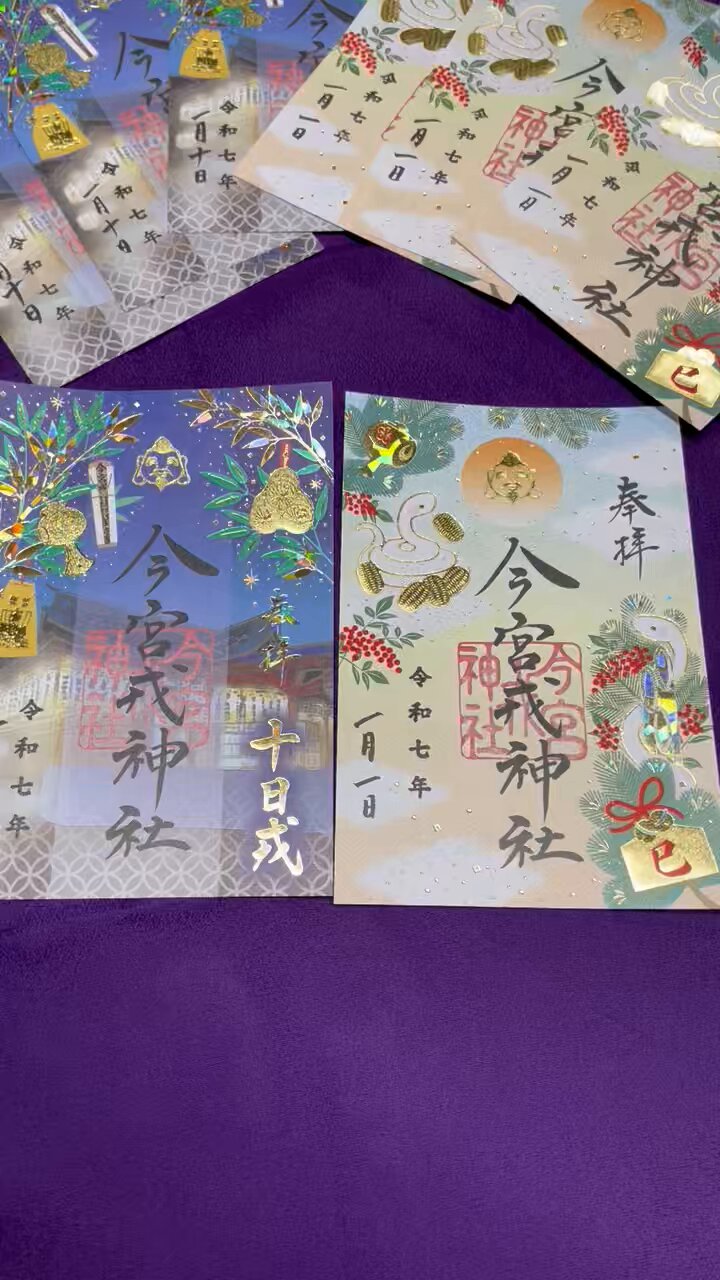 今宮
令和七年
一月十日
令和七年
一月十日
令和七年
月十日
令和七年
一月一日
令和七年
一月一日
今宮
神社
令和七年
一月一日
宮戎神社
今宮
神社
巳
奉拝
十日戎
今宮戎神社
今宮
神社
令和七年
奉拝
今宮戎神社
今宮
神社
令和七年
一月一日
巳